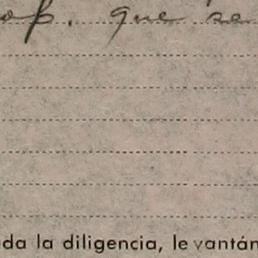 que se
da la diligencia, levantán